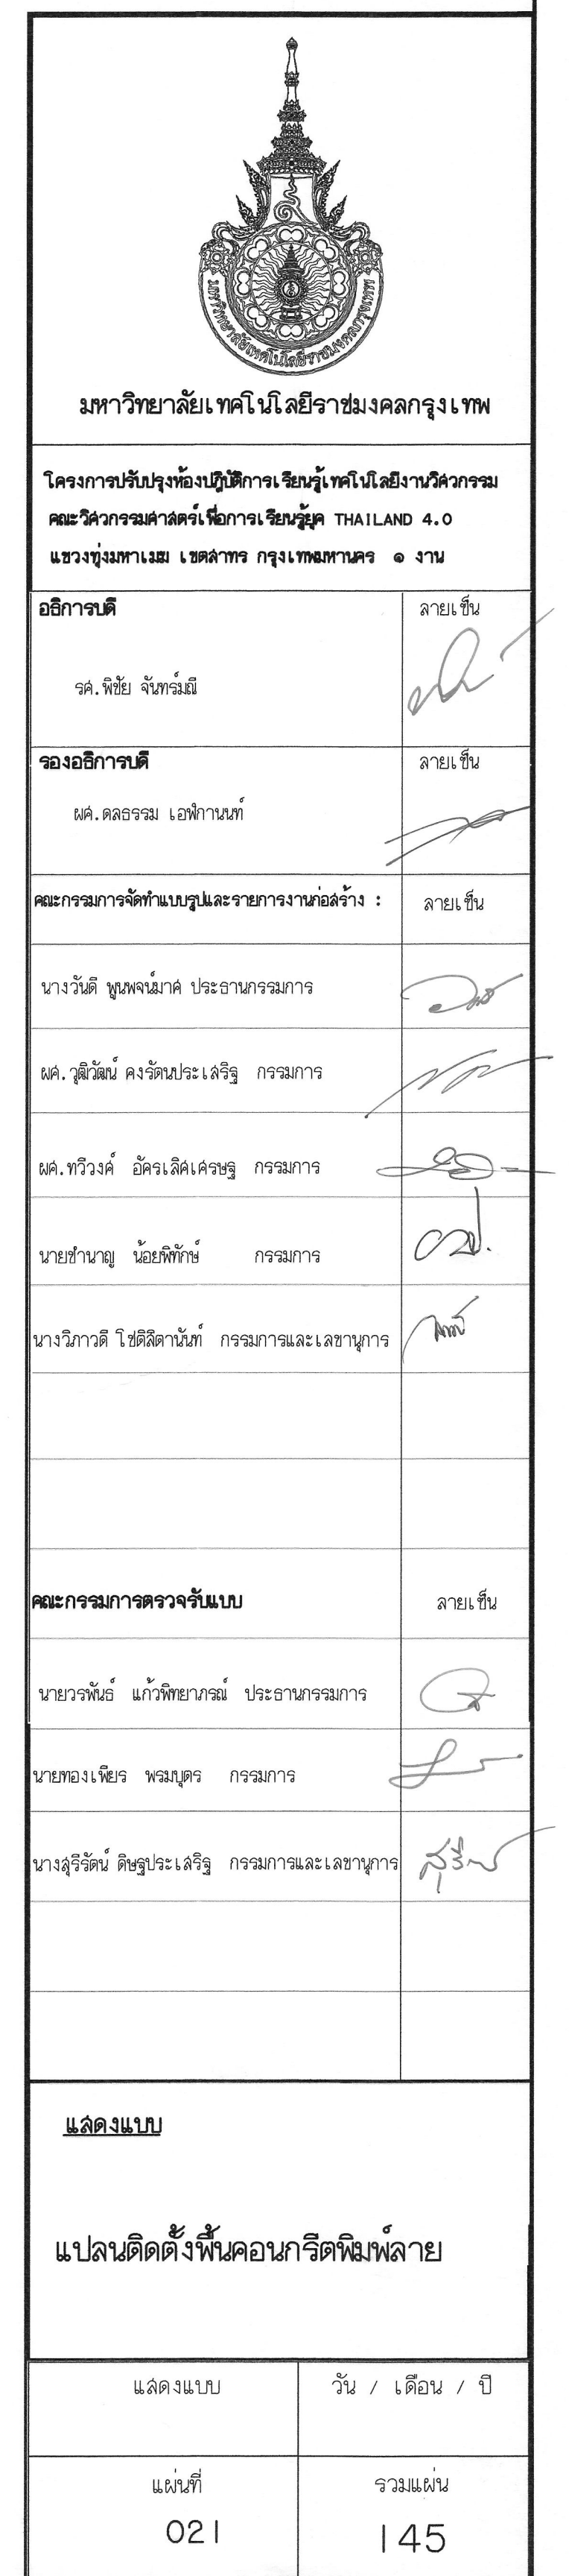 มหาวิทยาลัยเทคโนโลยีราชมงคลกรุงเทพ
มหาวิทยาลัยเทคโนโลยีราชมงคลกรุงเทพ
โครงการปรับปรุงห้องปฏิบัติการเรียนรู้เทคโนโลยีงานวิศวกรรม
คณะวิศวกรรมศาสตร์เพื่อการเรียนรู้ยุค THAILAND 4.0
แขวงทุ่งมหาเมฆ เขตสาทร กรุงเทพมหานคร ๑ งาน
อธิการบดี ลายเซ็น
รศ.พิชัย จันทร์มณี
รองอธิการบดี ลายเซ็น
ผศ.ดลธรรม เอฬกานนท์
คณะกรรมการจัดทำแบบรูปและรายการงานก่อสร้าง : ลายเซ็น
นางวันดี พูนพจน์มาศ ประธานกรรมการ
ผศ.วุฒิวัฒน์ คงรัตนประเสริฐ กรรมการ
ผศ.ทวีวงศ์ อัครเลิศเศรษฐ กรรมการ
นายชำนาญ น้อยพิทักษ์ กรรมการ
นางวิภาวดี โชติลิตานันท์ กรรมการและเลขานุการ
คณะกรรมการตรวจรับแบบ ลายเซ็น
นายวรพันธ์ แก้วพิทยาภรณ์ ประธานกรรมการ
นายทองเพียร พรมบุตร กรรมการ
นางสุรีรัตน์ ดิษฐประเสริฐ กรรมการและเลขานุการ
แสดงแบบ
แปลนติดตั้งพื้นคอนกรีตพิมพ์ลาย
แสดงแบบ วัน / เดือน / ปี
แผ่นที่ รวมแผ่น
021 145